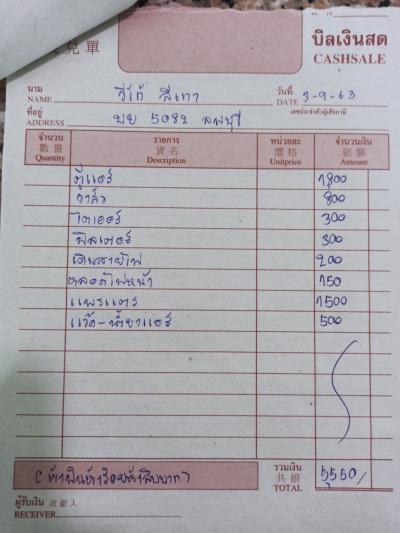 見單
บิลเงินสด
CASHSALE
นาม
NAME วีโก้ สีเทา
วันที่
DATE 3-9-63
ที่อยู่
ADDRESS บย 5082 ลพบุรี
เลขประจำตัวผู้เสียภาษี
จำนวน รายการ หน่วยละ จำนวนเงิน
數量 貨名 價格 銀額
Quantity Description Unitprice Amount
ตู้แอร์ 1,800
วาล์ว 800
ไดเออร์ 300
ฟิลเตอร์ 300
เดินสายไฟ 200
หลอดไฟหน้า 150
แผงแอร์ 1500
แว๊ก-น้ำยาแอร์ 500
(ห้าพันห้าร้อยห้าสิบบาท)
รวมเงิน
共銀
TOTAL 5,550/
ผู้รับเงิน 收銀人
RECEIVER